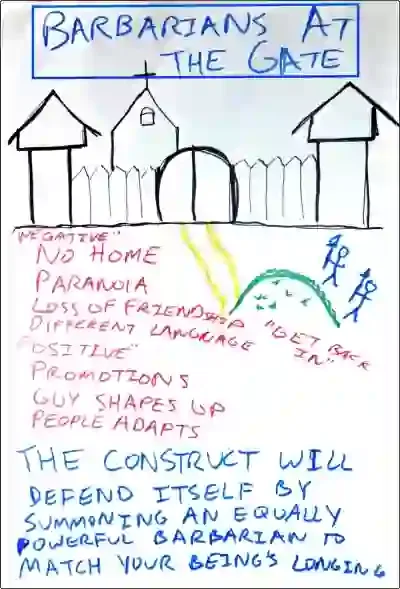 BARBARIANS AT
THE GATE
"NEGATIVE"
NO HOME
PARANOIA
LOSS OF FRIENDSHIP
DIFFERENT LANGUAGE
"GET BACK
IN"
POSITIVE"
PROMOTIONS
GUY SHAPES UP
PEOPLE ADAPTS
THE CONSTRUCT WILL
DEFEND ITSELF BY
SUMMONING AN EQUALLY
POWERFUL BARBARIAN TO
MATCH YOUR BEING'S LONGING